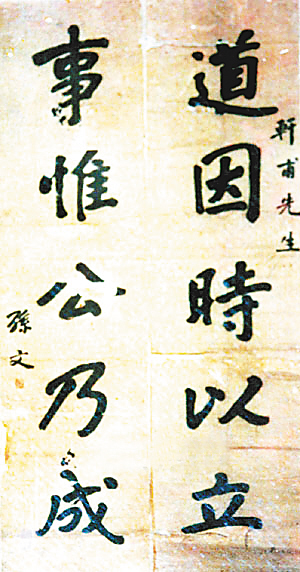 軒甫先生
道因時以立
事惟公乃成
孫文